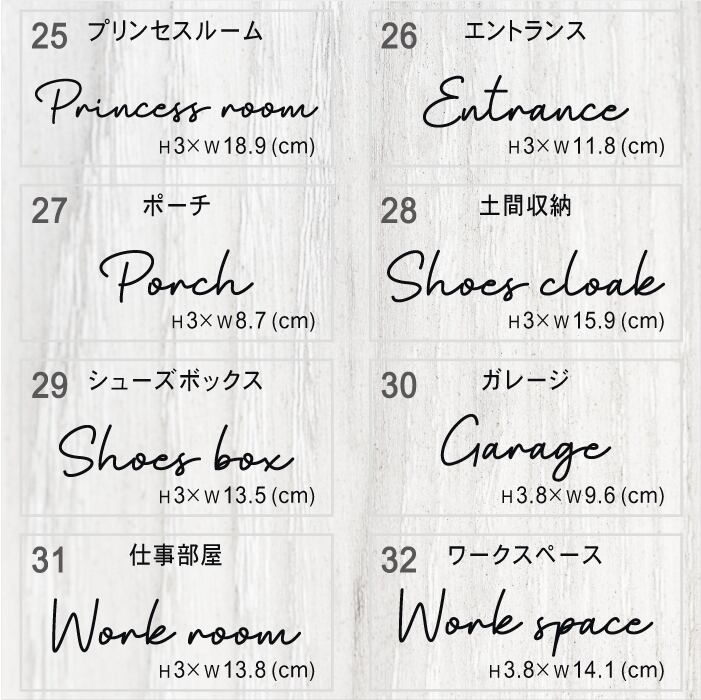 25 プリンセスルーム
Princess room
H3×W18.9(cm)
26 エントランス
Entrance
H3×W11.8(cm)
27 ポーチ
Porch
H3×W8.7(cm)
28 土間収納
Shoes cloak
H3×W15.9(cm)
29 シューズボックス
Shoes box
H3×W13.5(cm)
30 ガレージ
Garage
H3.8×W9.6(cm)
31 仕事部屋
Work room
H3×W13.8(cm)
32 ワークスペース
Work space
H3.8×W14.1(cm)